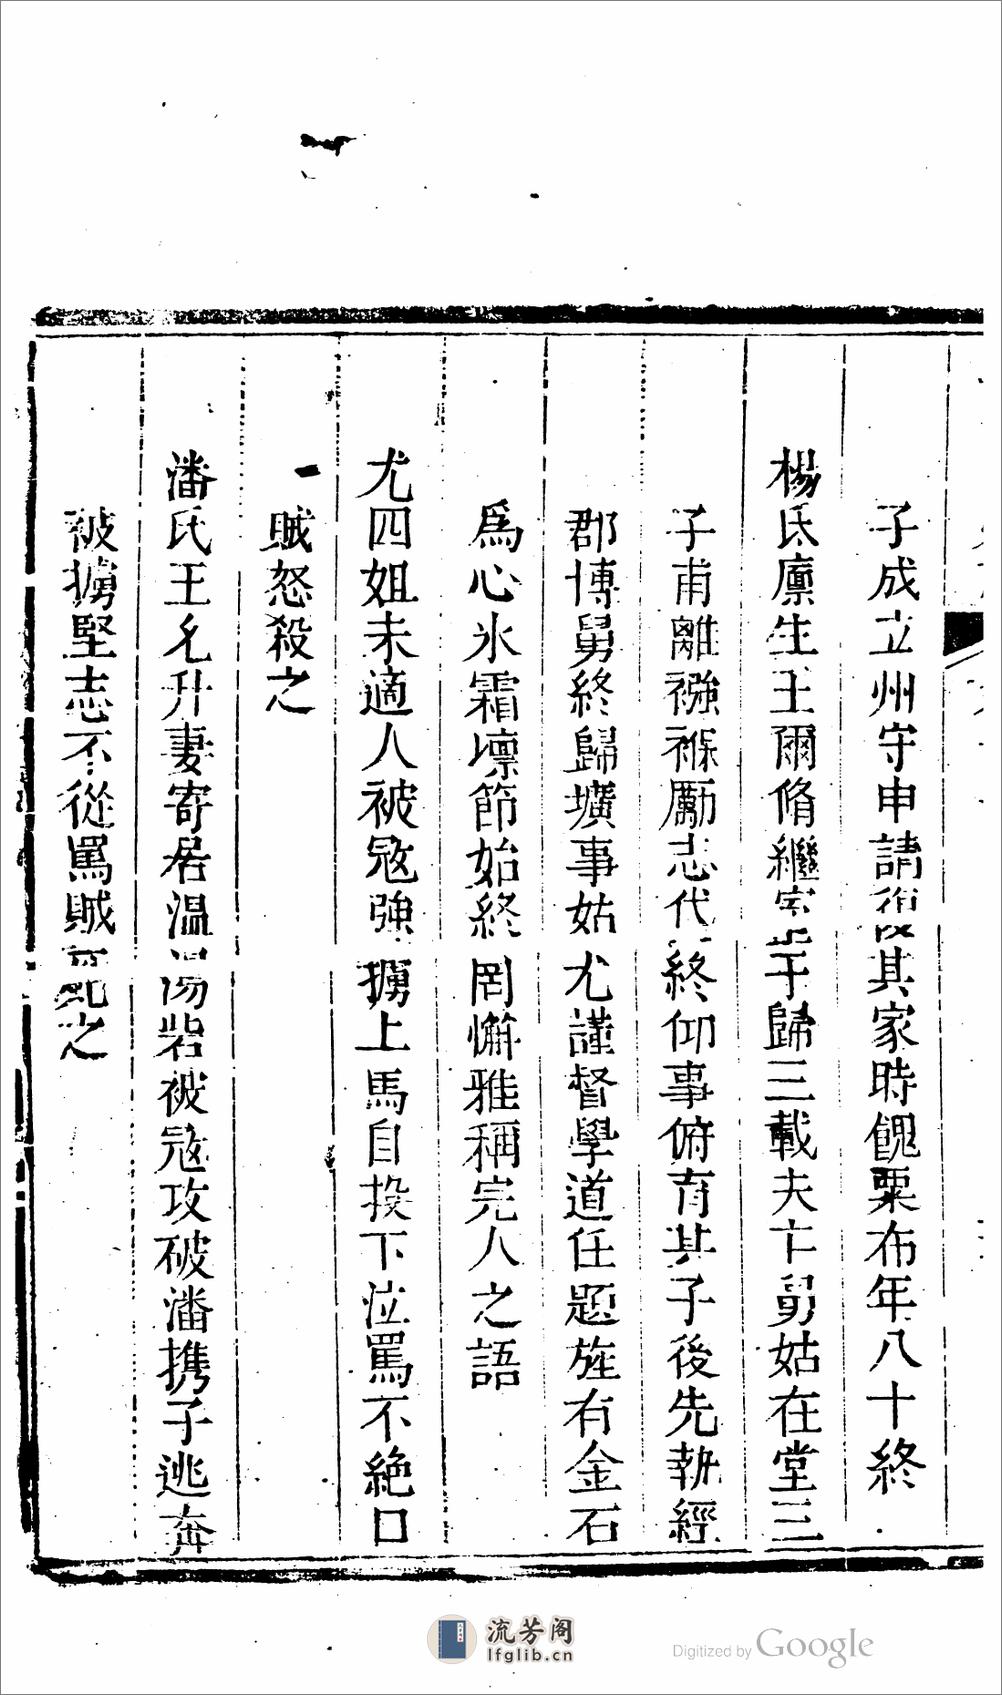 子成立州守申請復其家時餽粟布年八十終
楊氏廪生王爾脩繼室于歸三載夫亡舅姑在堂三
子甫離襁褓勵志代終仰事俯育其子後先執經
郡博舅終歸壙事姑尤謹督學道任題旌有金石
爲心氷霜凛節始終罔懈雅稱完人之語
尤四姐未適人被寇強擄上馬自投下泣罵不絶口
賊怒殺之
潘氏王允升妻寄居温湯砦被寇攻破潘携子逃奔
被擄堅志不從罵賊死之
流芳阁
lfglib.cn
Digitized by Google